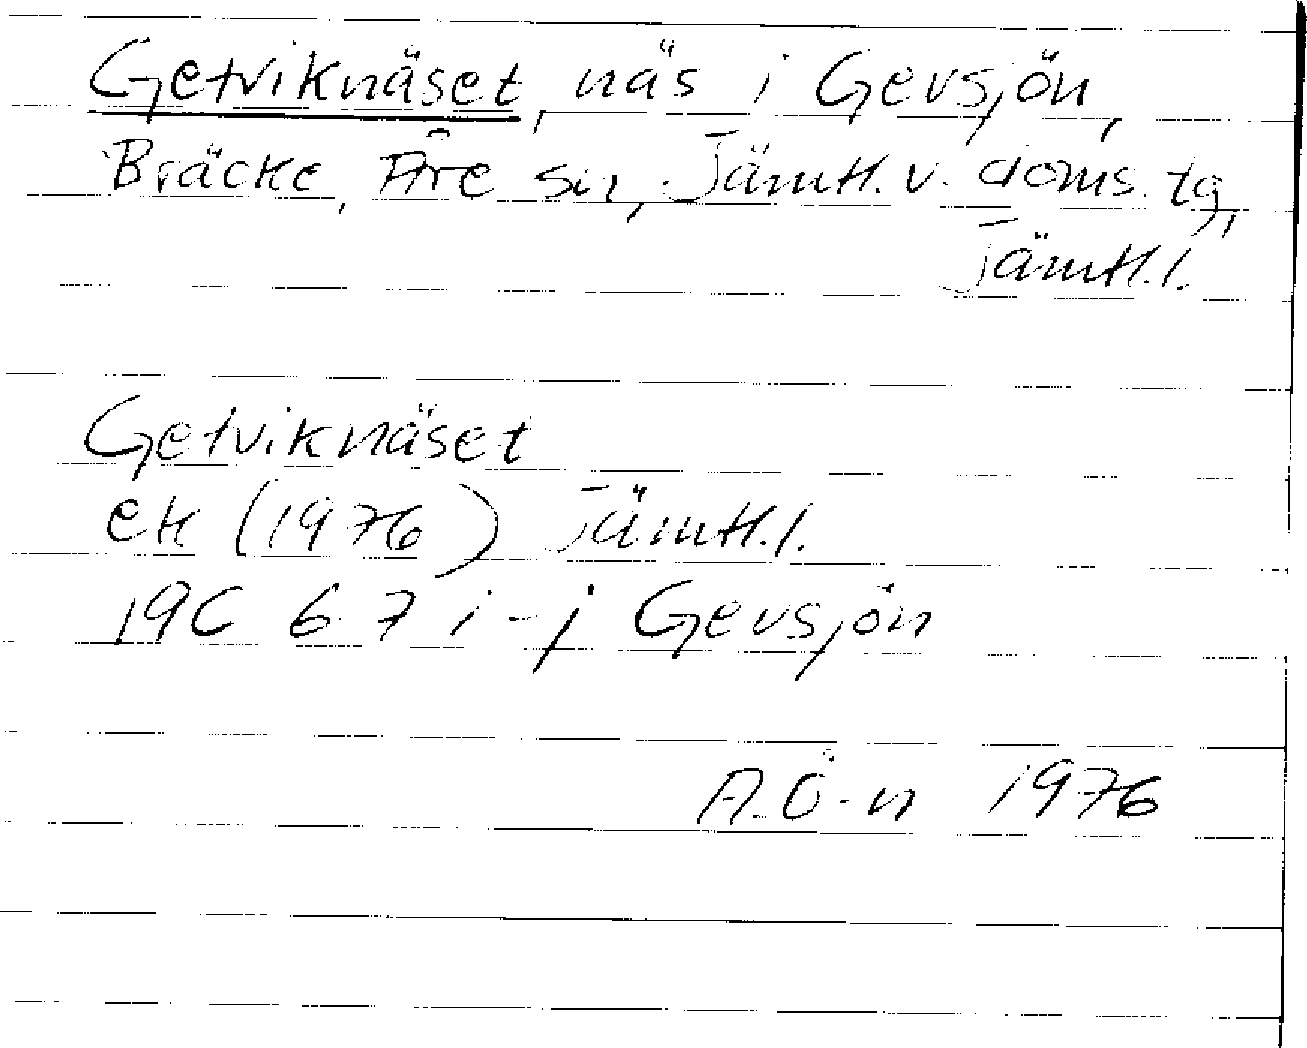 Getviknäset, näs i Gevsjön,
Bräcke, Åre sn, Jämtl. v. doms. tg,
Jämtl. l.
Getviknäset
ek (1976) Jämtl. l.
19C 6-7 i-j Gevsjön
A. Ö-n 1976